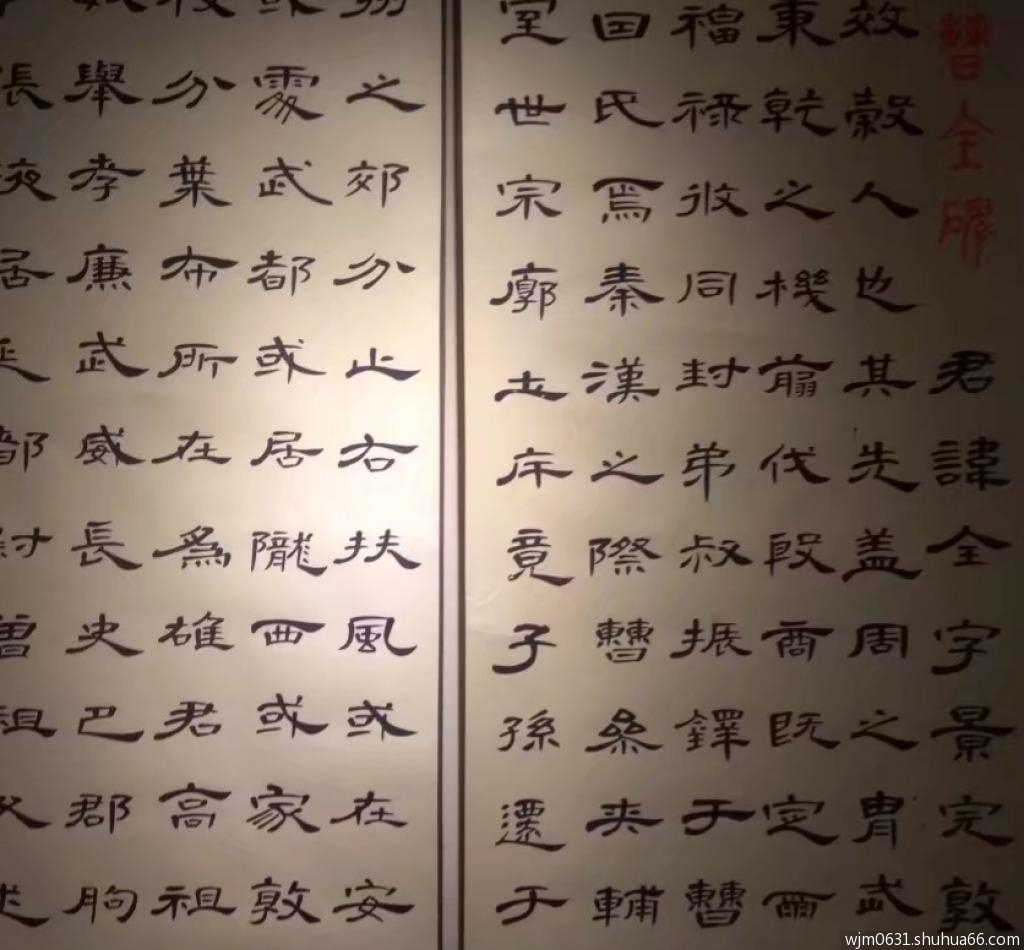 曹全碑
君諱全字景完敦
效穀人也其先盖周之胄武
秉乾之機翦伐殷商既定爾
福祿攸同封弟叔振鐸于曹
因氏焉秦漢之際曹參夾輔
室世宗廓土斥竟子孫遷于
之郊分止右扶風或在安
或處武都或居隴西或家敦
枝分葉布所在為雄君高祖
敏舉孝廉武威長史巴郡朐
張掖居延都尉曾祖父述
wjm0631.shuhua66.com